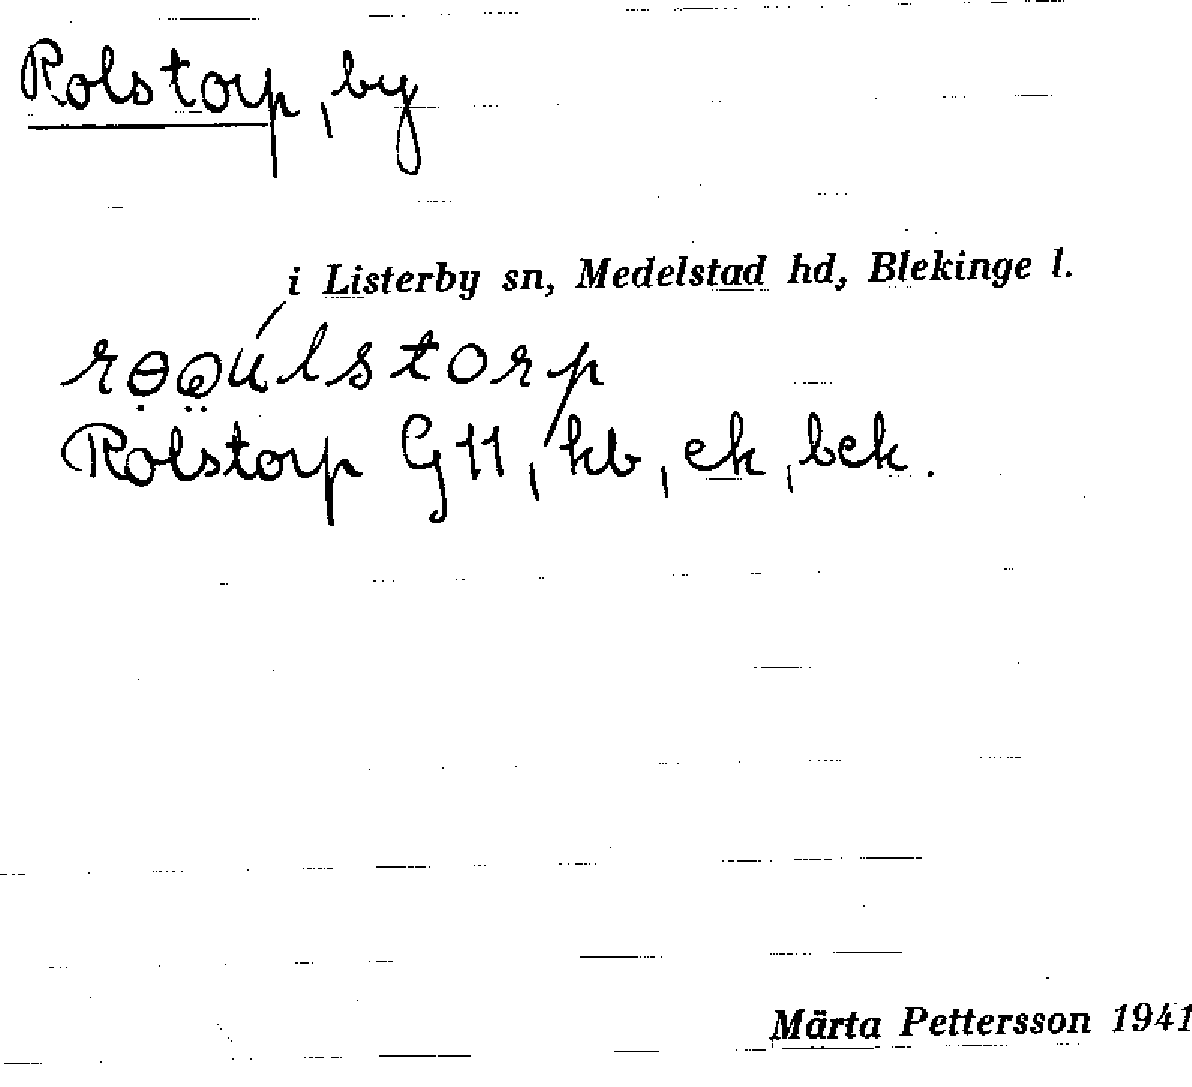 Rolstorp, by
i Listerby sn, Medelstad hd, Blekinge l.
Rolstorp G11, kb, ek, bck.
Märta Pettersson 1941